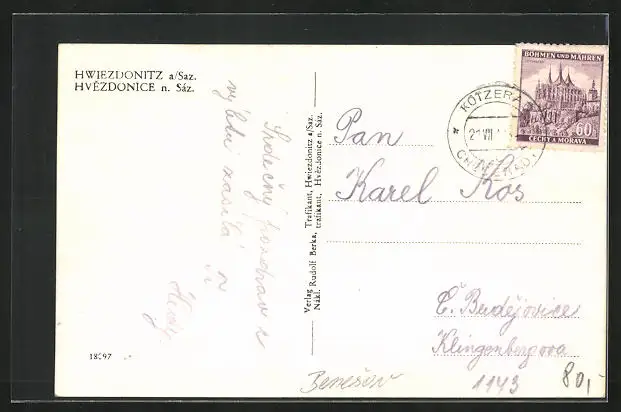 HWIEZDONITZ a/Saz.
HVĚZDONICE n. Sáz.
Společný pozdrav z
výletu zasílá
18097
Verlag Rudolf Berka, Trafikant, Hwiezdonitz a/Saz.
Nákl. Rudolf Berka, trafikant, Hvězdonice n. Sáz.
BÖHMEN UND MÄHREN
60
ČECHY A MORAVA
KOTZERA
21 VII
Pan
Karel Kos
Č. Budějovice
Klingenbergova
1143
Benešov
80,-